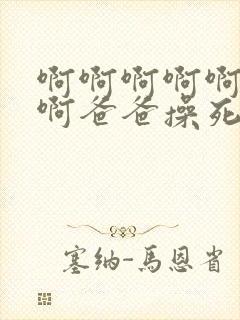 啊啊啊啊啊
啊爸爸操死
塞纳-馬恩省